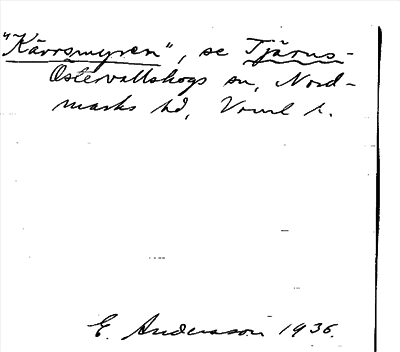 "Kärrsmyren", se Tjärns-
Östervallskogs sn, Nord-
marks hd, Vrml l.
E. Andersson 1936.